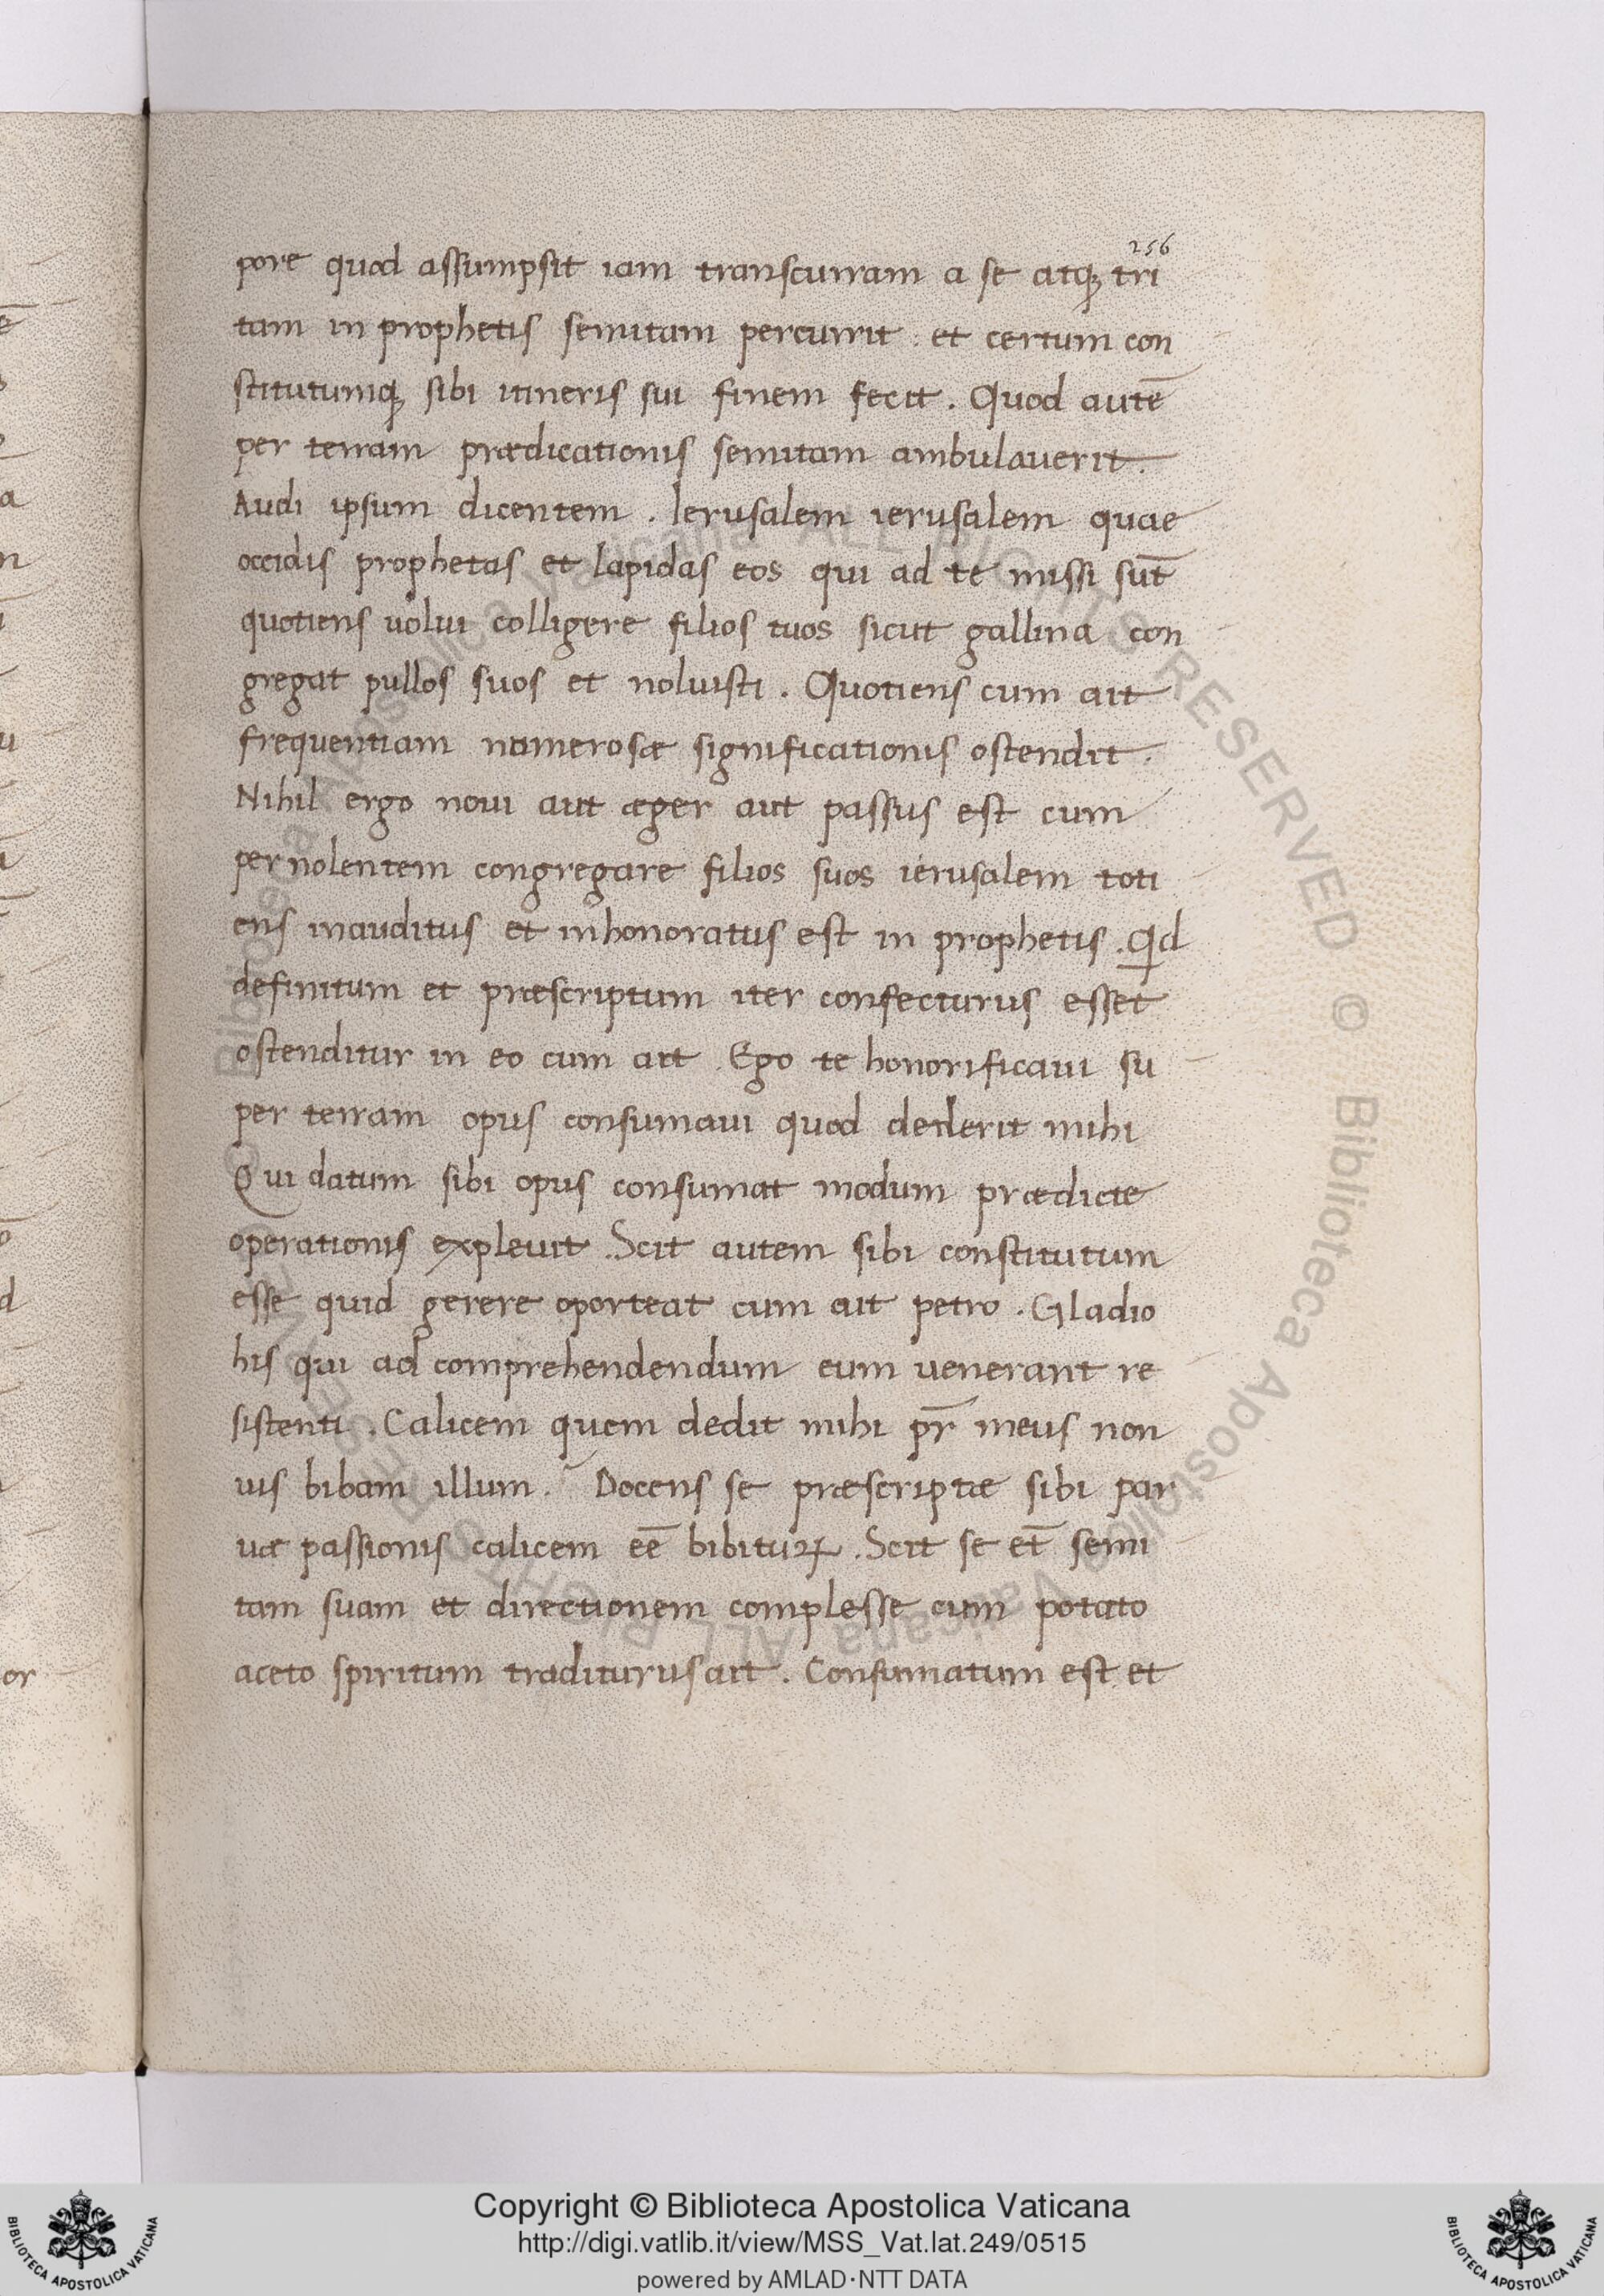 256
pore quod assumpsit iam transcurram a se atq; tri
tam in prophetis semitam percurrit . et certum con
stitutumq; sibi itineris sui finem fecit . Quod autē
per terram prædicationis semitam ambulaverit .
Audi ipsum dicentem . Ierusalem ierusalem quae
occidis prophetas et lapidas eos qui ad te missi sūt
quotiens uolui colligere filios tuos sicut gallina con
gregat pullos suos et noluisti . Quotiens cum ait
frequentiam numerosæ significationis ostendit .
Nihil ergo noui aut æger aut passus est cum
per nolentem congregare filios suos ierusalem toti
ens inauditus et inhonoratus est in prophetis . Qd
definitum et præscriptum iter confecturus esset
ostenditur in eo cum ait . Ego te honorificaui su
per terram opus consumaui quod dederit mihi
Qui datum sibi opus consumat modum prædicte
operationis expleuit . Scit autem sibi constitutum
esse quid gerere oporteat cum ait petro . Gladio
his qui ad comprehendendum eum uenerant re
sistenti . Calicem quem dedit mihi pr̄ meus non
uis bibam illum . Docens se præscriptæ sibi par
uæ passionis calicem eē bibiturꝝ . Scit se et̄ semi
tam suam et directionem complesse cum potato
aceto spiritum traditurus ait . Consumatum est et
Copyright © Biblioteca Apostolica Vaticana
http://digi.vatlib.it/view/MSS_Vat.lat.249/0515
powered by AMLAD·NTT DATA
BIBLIOTECA APOSTOLICA VATICANA
BIBLIOTECA APOSTOLICA VATICANA